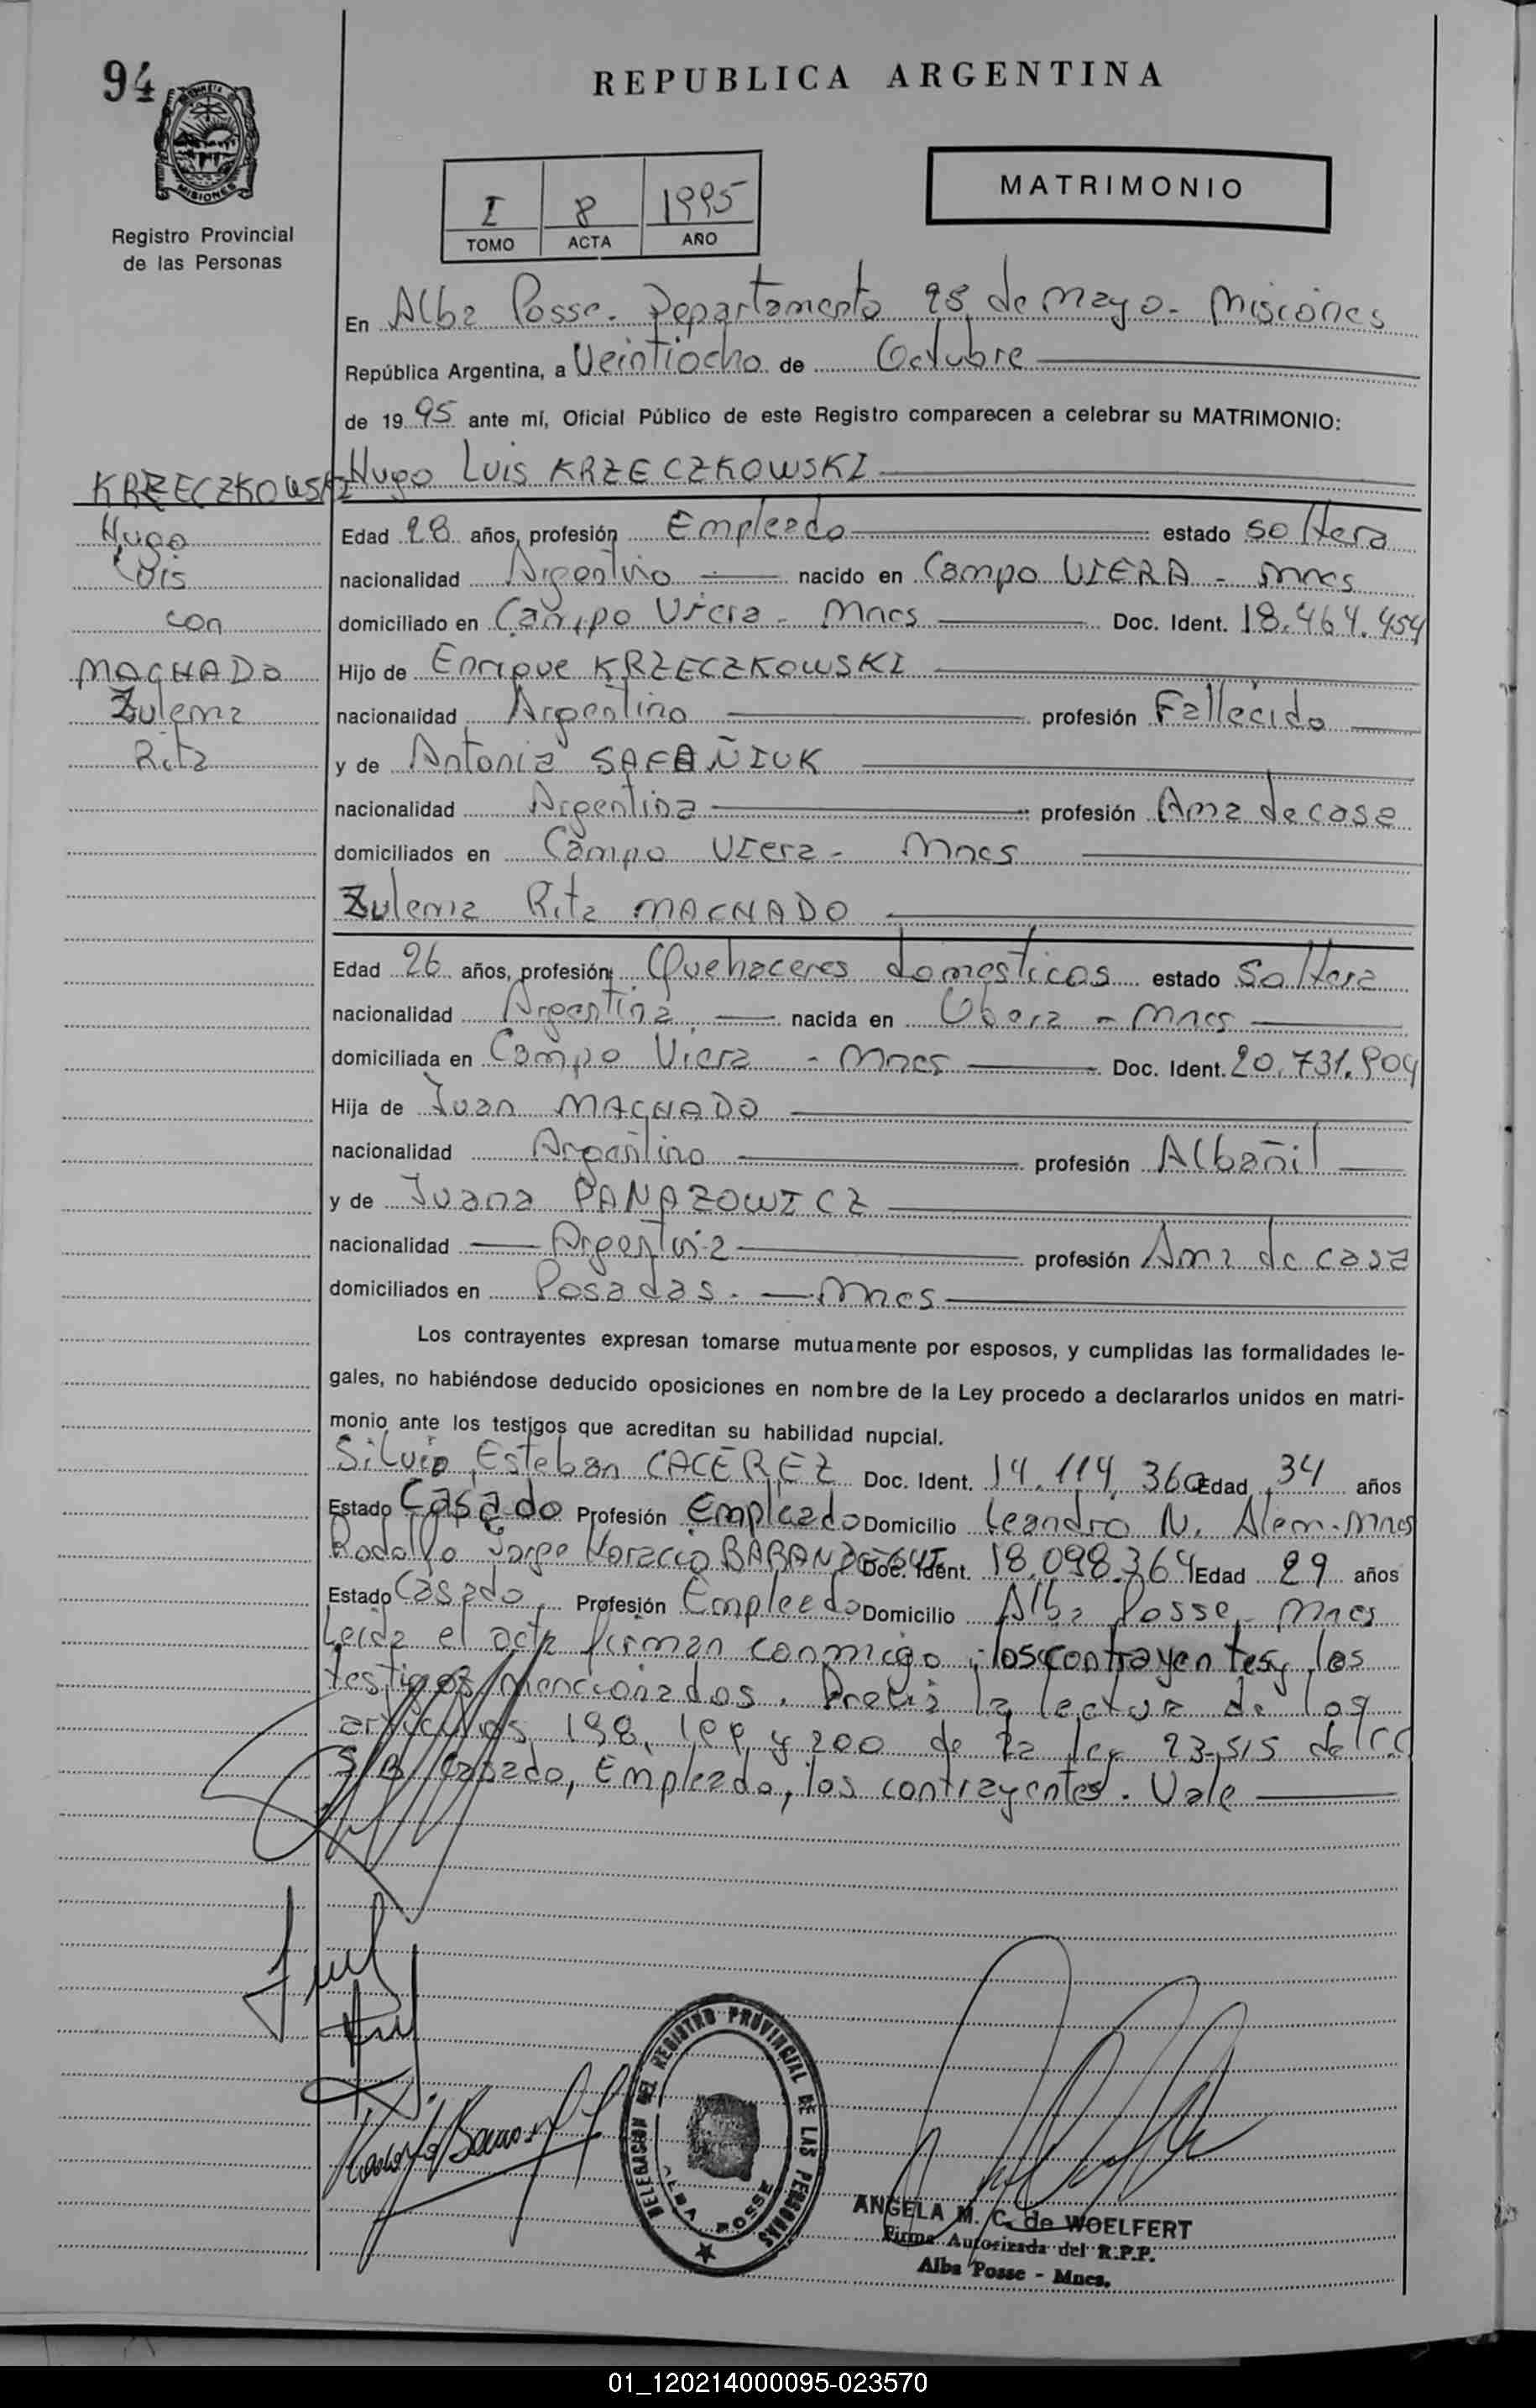 94
REPUBLICA ARGENTINA
MISIONES
Registro Provincial
de las Personas
I 8 1995
TOMO ACTA AÑO
MATRIMONIO
En Alba Posse. Departamento 25 de Mayo - Misiones
República Argentina, a Veintiocho de Octubre
de 1995 ante mí, Oficial Público de este Registro comparecen a celebrar su MATRIMONIO:
Hugo Luis KRZECZKOWSKI
KRZECZKOWSKI
Hugo
Luis
con
MACHADO
Zulema
Rita
Edad 28 años, profesión Empleado estado soltero
nacionalidad Argentino nacido en Campo VIERA - Mnes
domiciliado en Campo Viera - Mnes Doc. Ident. 18.464.454
Hijo de Enrique KRZECZKOWSKI
nacionalidad Argentino profesión Fallecido
y de Antonia
nacionalidad Argentina profesión Ama de casa
domiciliados en Campo Viera - Mnes
Zulema Rita MACHADO
Edad 26 años, profesión Quehaceres domesticos estado Soltera
nacionalidad Argentina nacida en Obera - Mnes
domiciliada en Campo Viera - Mnes Doc. Ident. 20.731.904
Hija de Juan MACHADO
nacionalidad Argentino profesión Albañil
y de Juana PANAZOWICZ
nacionalidad Argentina profesión Ama de casa
domiciliados en Posadas. - Mnes
Los contrayentes expresan tomarse mutuamente por esposos, y cumplidas las formalidades le-
gales, no habiéndose deducido oposiciones en nombre de la Ley procedo a declararlos unidos en matri-
monio ante los testigos que acreditan su habilidad nupcial.
Silvio Esteban CACEREZ Doc. Ident. 14.114.360 Edad 34 años
Estado Casado Profesión Empleado Domicilio Leandro N. Alem - Mnes
Rodolfo Jorge Horacio Doc. Ident. 18.098.364 Edad 29 años
Estado Casado Profesión Empleado Domicilio Alba Posse - Mnes
Leida el acta firman conmigo, los contrayentes y los
testigos mencionados. Previa la lectura de los
articulos 198, 199 y 200 de la ley 23.515 del C.C
S/B Casado, Empleado, los contrayentes. Vale
DELEGACION DEL REGISTRO PROVINCIAL DE LAS PERSONAS
ALBA POSSE
ANGELA M. C. de WOELFERT
Firma Autorizada del R.P.P.
Alba Posse - Mnes.
01_120214000095-023570